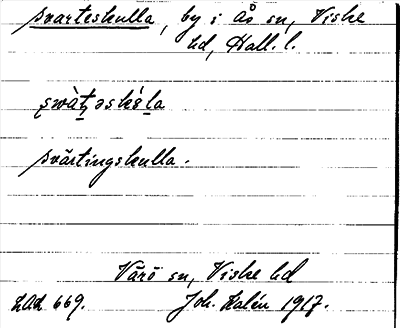 svarteskulla, by i Ås sn, Viske
hd, Hall. l.
swàṯəskúḻa
svärtingskulla.
Värö sn, Viske hd
LAL 669. Joh. Kalén 1917.